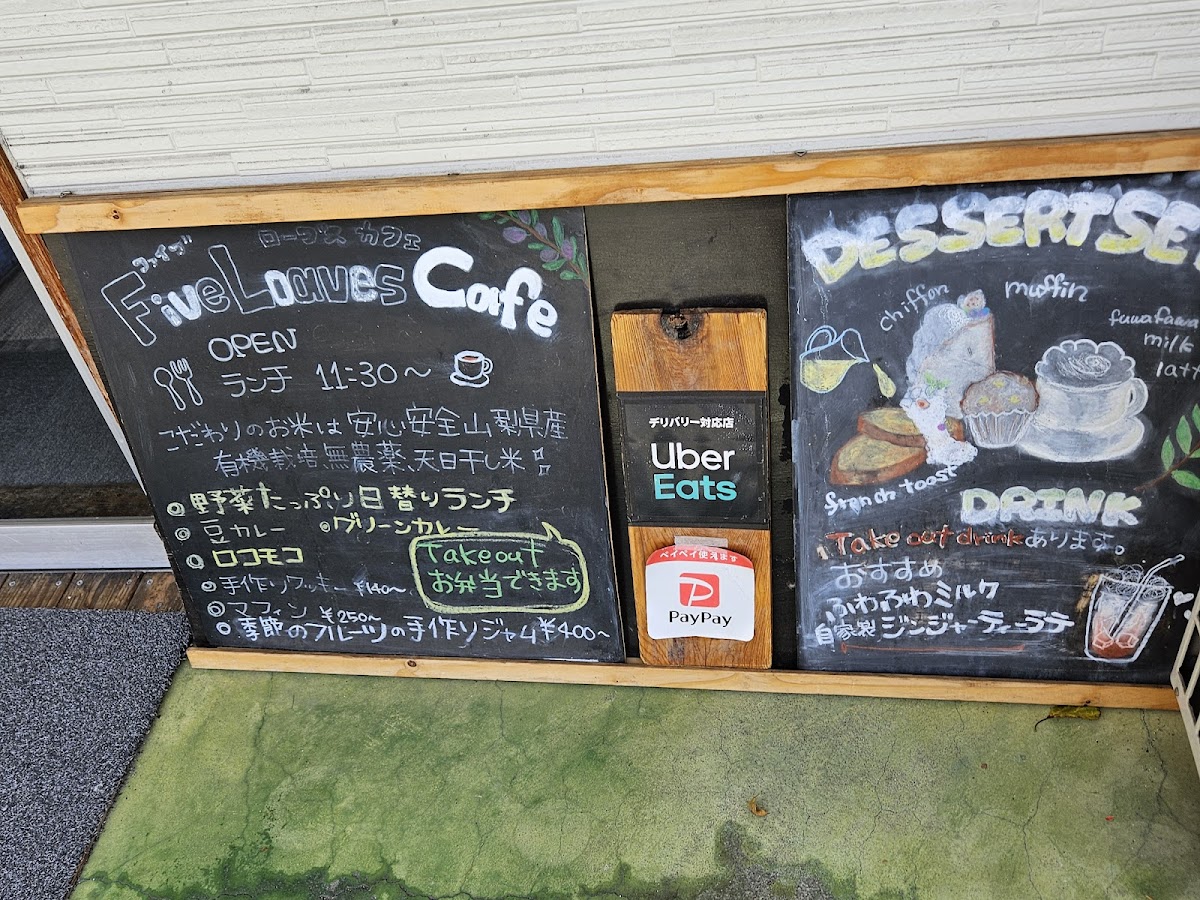 ファイブ ローブス カフェ
Five Loaves Cafe
OPEN
ランチ 11:30〜
こだわりのお米は安心安全山梨県産
有機栽培、無農薬、天日干し米!!
野菜たっぷり日替りランチ
豆カレー グリーンカレー
ロコモコ
手作りクッキー ¥140〜
マフィン ¥250〜
季節のフルーツの手作りジャム¥400〜
Take out
お弁当できます
デリバリー対応店
Uber
Eats
ペイペイ使えます
PayPay
DESSERT SE
chiffon
muffin
milk
french toast
DRINK
Take out drinkあります。
おすすめ
ふわふわミルク
自家製 ジンジャーティーラテ